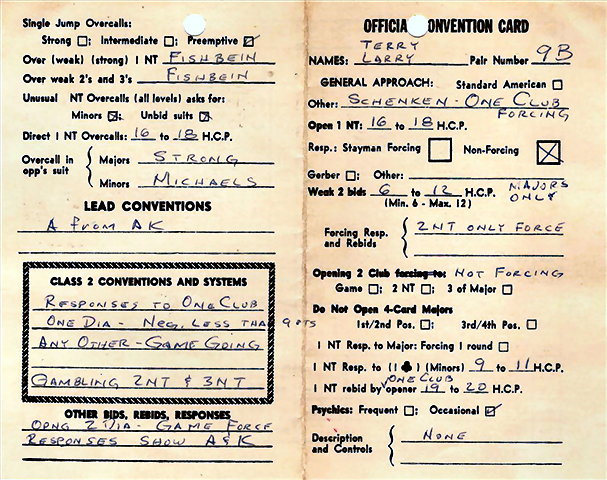 Single Jump Overcalls:
Strong ; Intermediate ; Preemptive
Over (weak) (strong) 1 NT FISHBEIN
Over weak 2's and 3's FISHBEIN
Unusual NT Overcalls (all levels) asks for:
Minors ; Unbid suits
Direct 1 NT Overcalls: 16 to 18 H.C.P.
Overcall in opp's suit
Majors STRONG
Minors MICHAELS
LEAD CONVENTIONS
A from AK
CLASS 2 CONVENTIONS AND SYSTEMS
RESPONSES TO ONE CLUB
ONE DIA - NEG, LESS THAN 9 PTS
ANY OTHER - GAME GOING
GAMBLING 2NT & 3NT
OTHER BIDS, REBIDS, RESPONSES
OPNG 2 DIA - GAME FORCE
RESPONSES SHOW A&K
OFFICIA ONVENTION CARD
TERRY
NAMES: LARRY Pair Number 9B
GENERAL APPROACH: Standard American
Other: SCHENKEN - ONE CLUB
FORCING
Open 1 NT: 16 to 18 H.C.P.
Resp.: Stayman Forcing Non-Forcing
Gerber ; Other:
Weak 2 bids 6 to 12 H.C.P. MAJORS ONLY
(Min. 6 - Max. 12)
Forcing Resp. and Rebids
2NT ONLY FORCE
Opening 2 Club forcing to: NOT FORCING
Game ; 2 NT ; 3 of Major
Do Not Open 4-Card Majors
1st/2nd Pos. ; 3rd/4th Pos.
1 NT Resp. to Major: Forcing 1 round
1 NT Resp. to (1 ♣) (Minors) 9 to 11 H.C.P.
ONE CLUB
1 NT rebid by opener 19 to 20 H.C.P.
Psychics: Frequent ; Occasional
Description and Controls
NONE